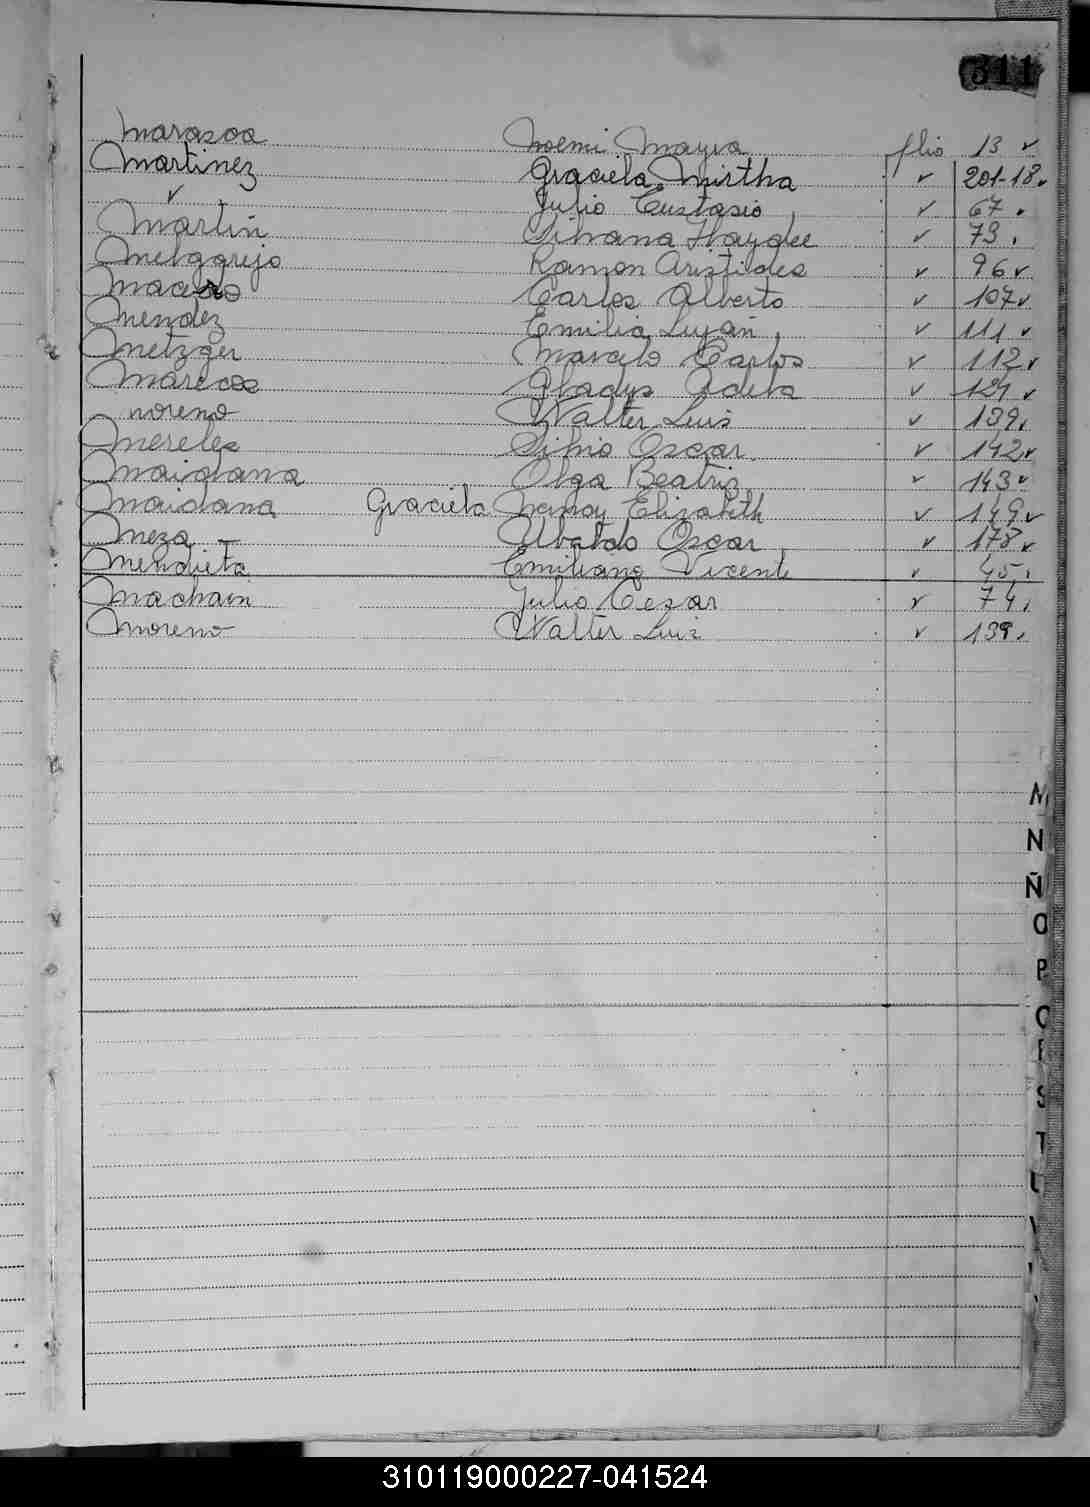 311
Marasca Noemi Mayra flio 13 ✓
Martinez Graciela Mirtha ✓ 201-18
✓ Julio Eustasio ✓ 67
Martin Silvana Haydee ✓ 73
Melggrejo Ramon Aristides ✓ 96 ✓
Carlos Alberto ✓ 107 ✓
Mendez Emilia Lujan ✓ 111 ✓
Metzger Marcelo Carlos ✓ 112 ✓
Marecos Gladys Adela ✓ ✓
Moreno Walter Luis ✓ 139
Mereles Silvio Oscar ✓ 142 ✓
Maidana Olga Beatriz ✓ 143 ✓
Maidana Graciela Nancy Elizabeth ✓ 149 ✓
Meza Ubaldo Oscar ✓ 178 ✓
Mendieta Emiliano Vicente ✓ 45
Machain Julio Cesar ✓ 74
Moreno Walter Luis ✓ 139
M
N
Ñ
O
P
Q
R
S
T
U
V
310119000227-041524